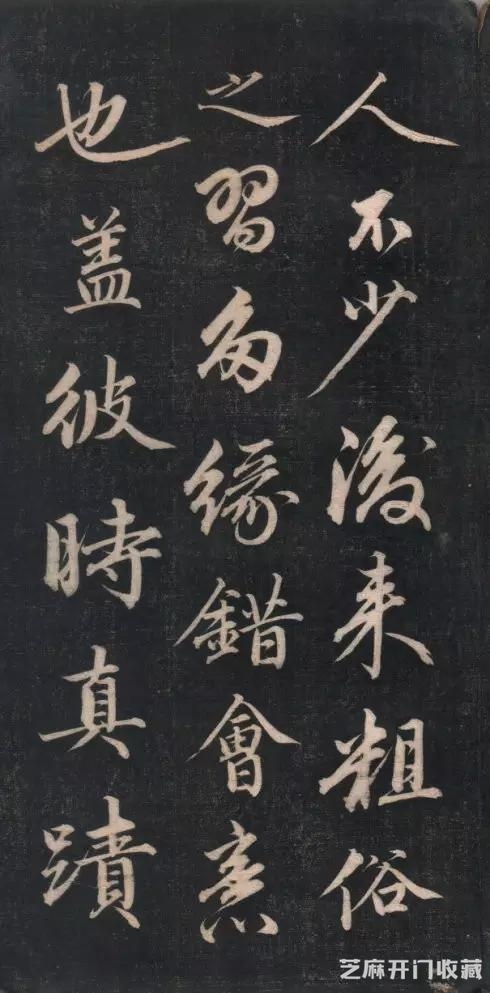 人不少後来粗俗
之習多緣錯會意
也盖彼時真蹟
芝麻开门收藏